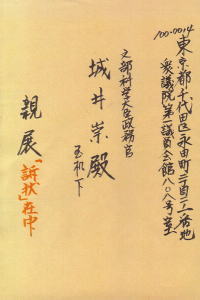 100-0014
東京都千代田区永田町二の二の一番地
衆議院第一議員会館八〇八号室
文部科学大臣政務官
城井崇殿
玉机下
親展
「訴状」在中